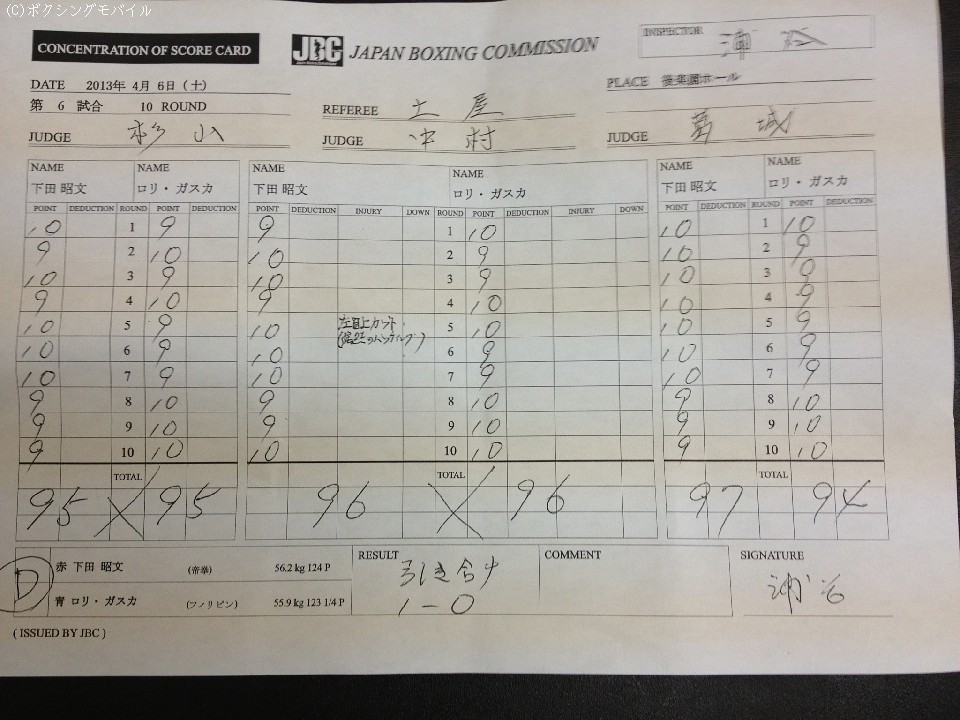 (C)ボクシングモバイル
CONCENTRATION OF SCORE CARD
JBC JAPAN BOXING COMMISSION
INSPECTOR
DATE 2013年 4月 6日 (土)
PLACE 後楽園ホール
第 6 試合 10 ROUND
REFEREE 土屋
JUDGE 杉山
JUDGE 中村
JUDGE 葛城
NAME NAME NAME NAME NAME NAME
下田 昭文 ロリ・ガスカ 下田 昭文 ロリ・ガスカ 下田 昭文 ロリ・ガスカ
POINT DEDUCTION ROUND POINT DEDUCTION POINT DEDUCTION INJURY DOWN ROUND POINT DEDUCTION INJURY DOWN POINT DEDUCTION ROUND POINT DEDUCTION
10 1 9 9 1 10 10 1 10
9 2 10 10 2 9 10 2 9
10 3 9 10 3 9 10 3 9
9 4 10 9 4 10 10 4 9
10 5 9 10 左目上カット 5 10 10 5 9
10 6 9 10 6 9 10 6 9
10 7 9 10 7 9 10 7 9
9 8 10 9 8 10 9 8 10
9 9 10 9 9 10 9 9 10
9 10 10 10 10 10 9 10 10
TOTAL TOTAL TOTAL
95 95 96 96 97 94
D
赤 下田 昭文 (帝拳) 56.2 kg 124 P
青 ロリ・ガスカ (フィリピン) 55.9 kg 123 1/4 P
RESULT
引き分け
1-0
COMMENT
SIGNATURE
( ISSUED BY JBC )